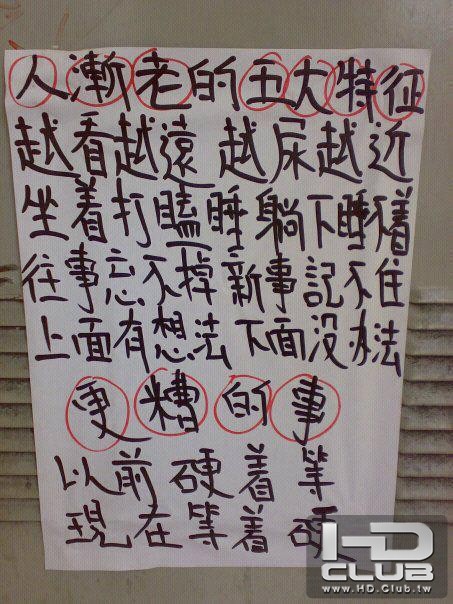 人漸老的五大特征
越看越遠 越尿越近
坐着打瞌睡 躺下睡不着
往事忘不掉 新事記不住
上面有想法 下面没办法
更糟的事
以前硬着等
現在等着硬
HD CLUB
www.HD.Club.tw